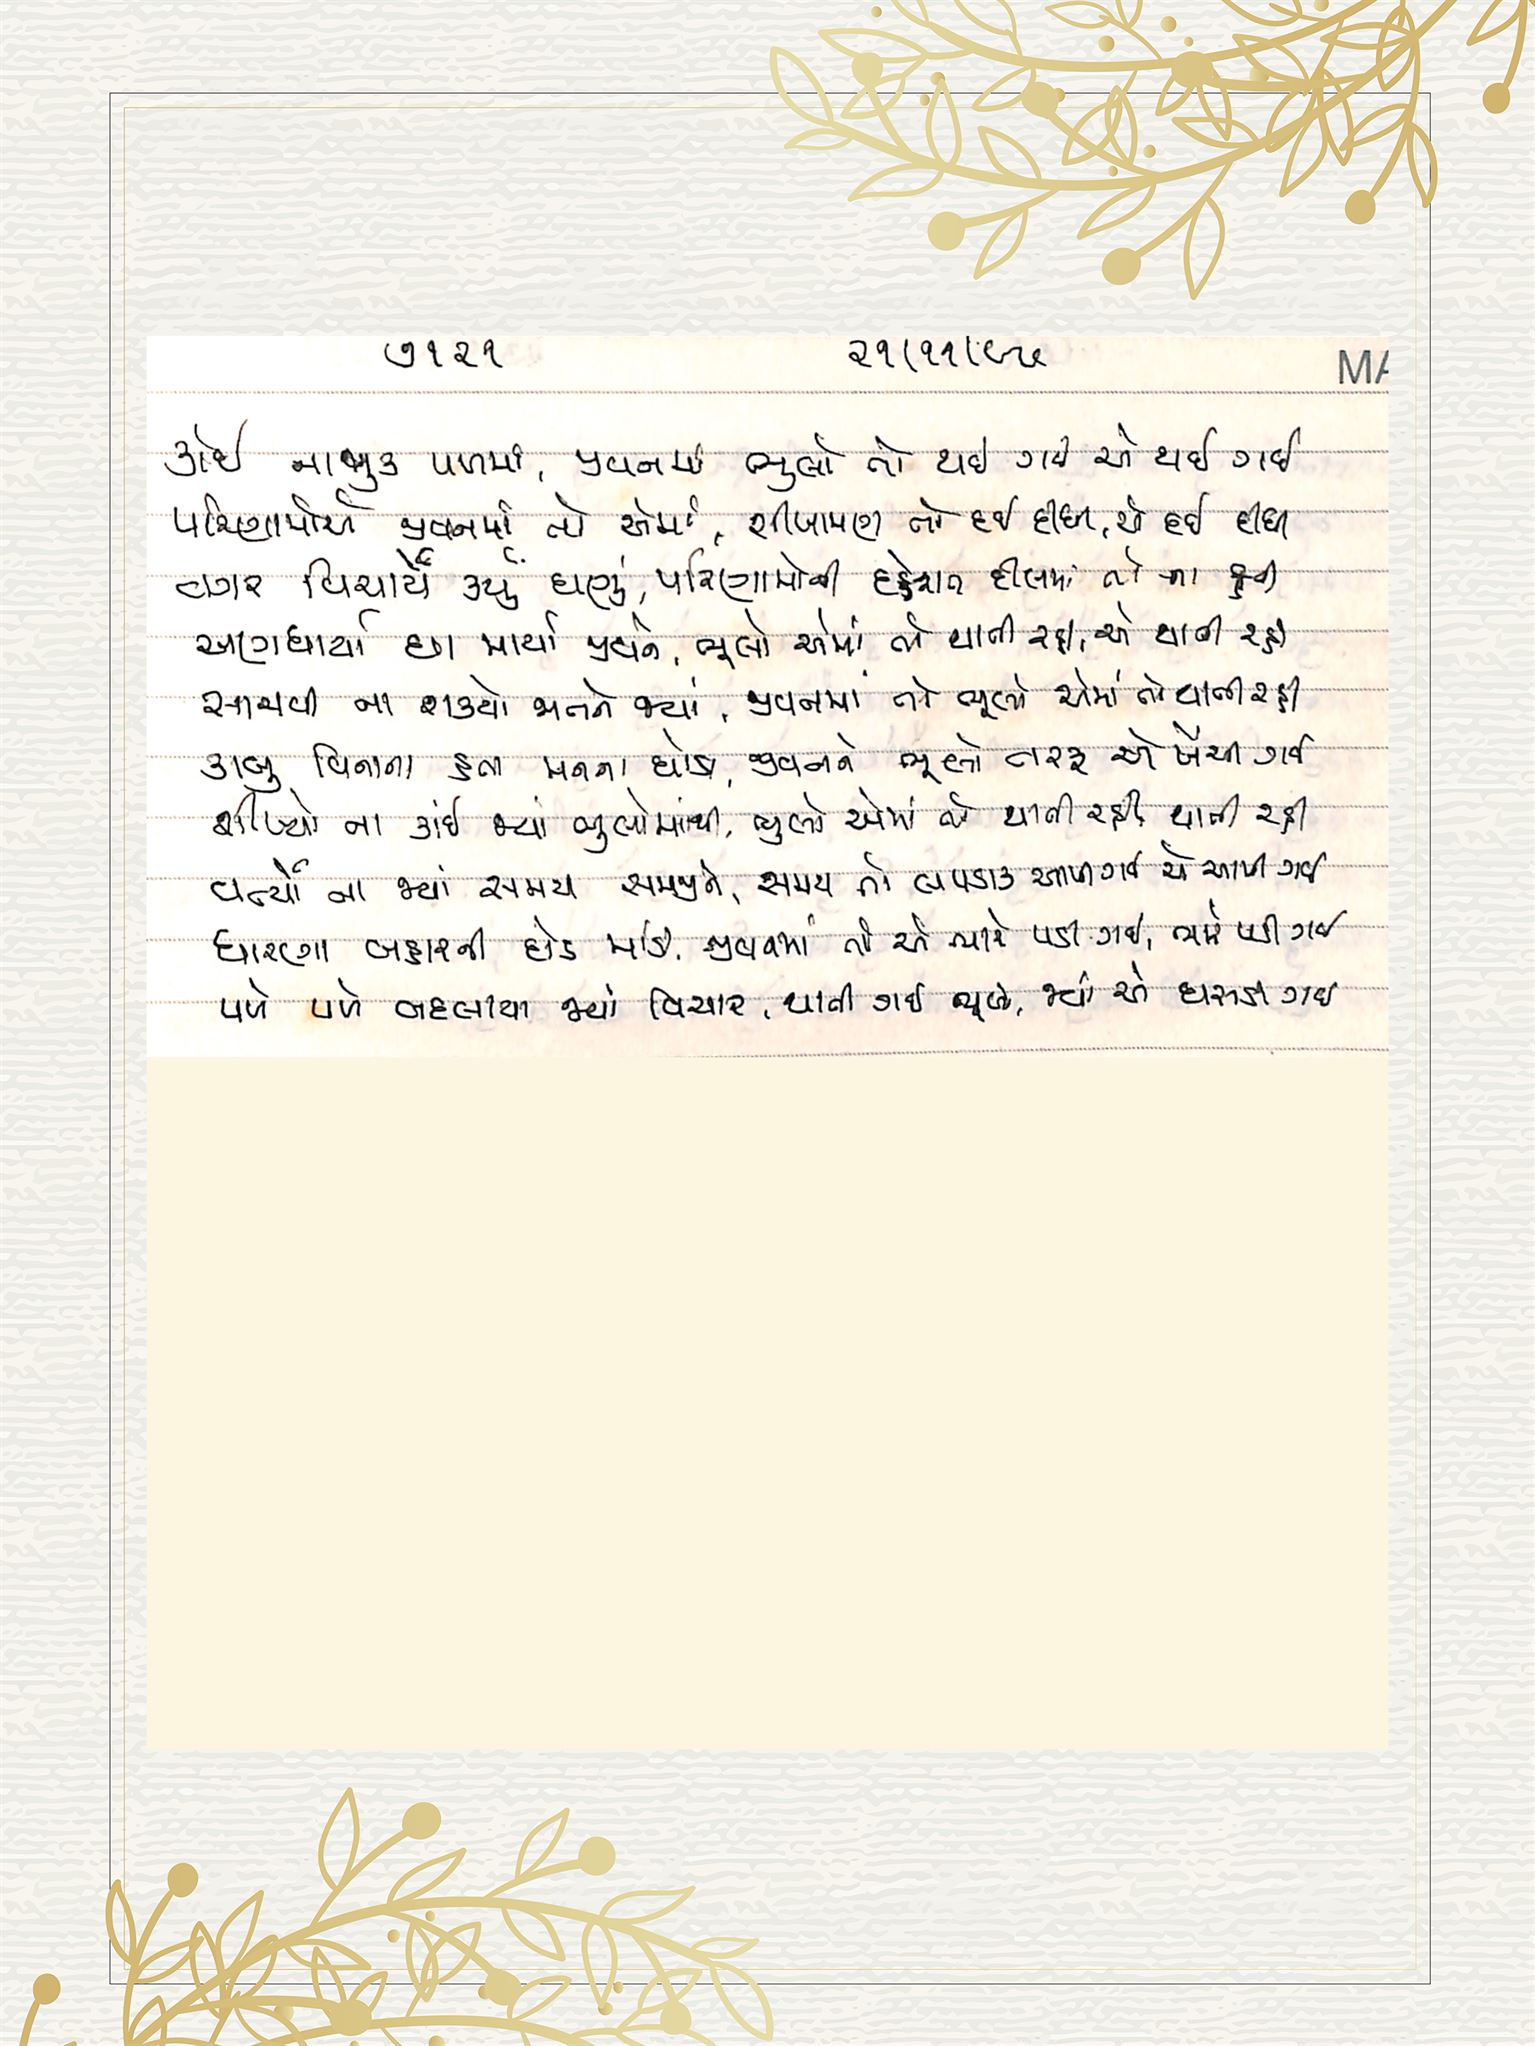 ૭૧૨૧ ૨૧/૧૧/૯૮ MA
કોઈ નાજુક પળમાં, જીવનમાં ભુલો તો થઈ ગઈ એ થઈ ગઈ
પરિણામોએ જીવનમાં તો એમાં, શીખામણ તો દઈ દીધી, એ દઈ દીધી
વગર વિચાર્યે કર્યું ઘણું, પરિણામોની દહેશત દીલમાં તો ના હતી
અણધાર્યા છાપા માર્યા જીવને, ભૂલો એમાં તો થાતી રહી, એ થાતી રહી
સાચવી ના શક્યો મનને જ્યાં, જીવનમાં તો ભૂલો એમાં તો થાતી રહી
કાબુ વિનાના હતા મનના ઘોડા, જીવનને ભૂલો તરફ એ ખેંચી ગઈ
શીખ્યો ના કાંઈ જ્યાં ભુલોમાંથી, ભુલો એમાં તો થાતી રહી, થાતી રહી
વર્ત્યો ના જ્યાં સમય સમજીને, સમય તો લપડાક આપી ગઈ એ આપી ગઈ
ધારણા બહારની હોડ માંડી, જીવનમાં તો એ ભારે પડી ગઈ, ભારે પડી ગઈ
પળે પળે બદલાયા જ્યાં વિચાર, થાતી ગઈ ભૂલો, જ્યાં એ ઘસડી ગઈ